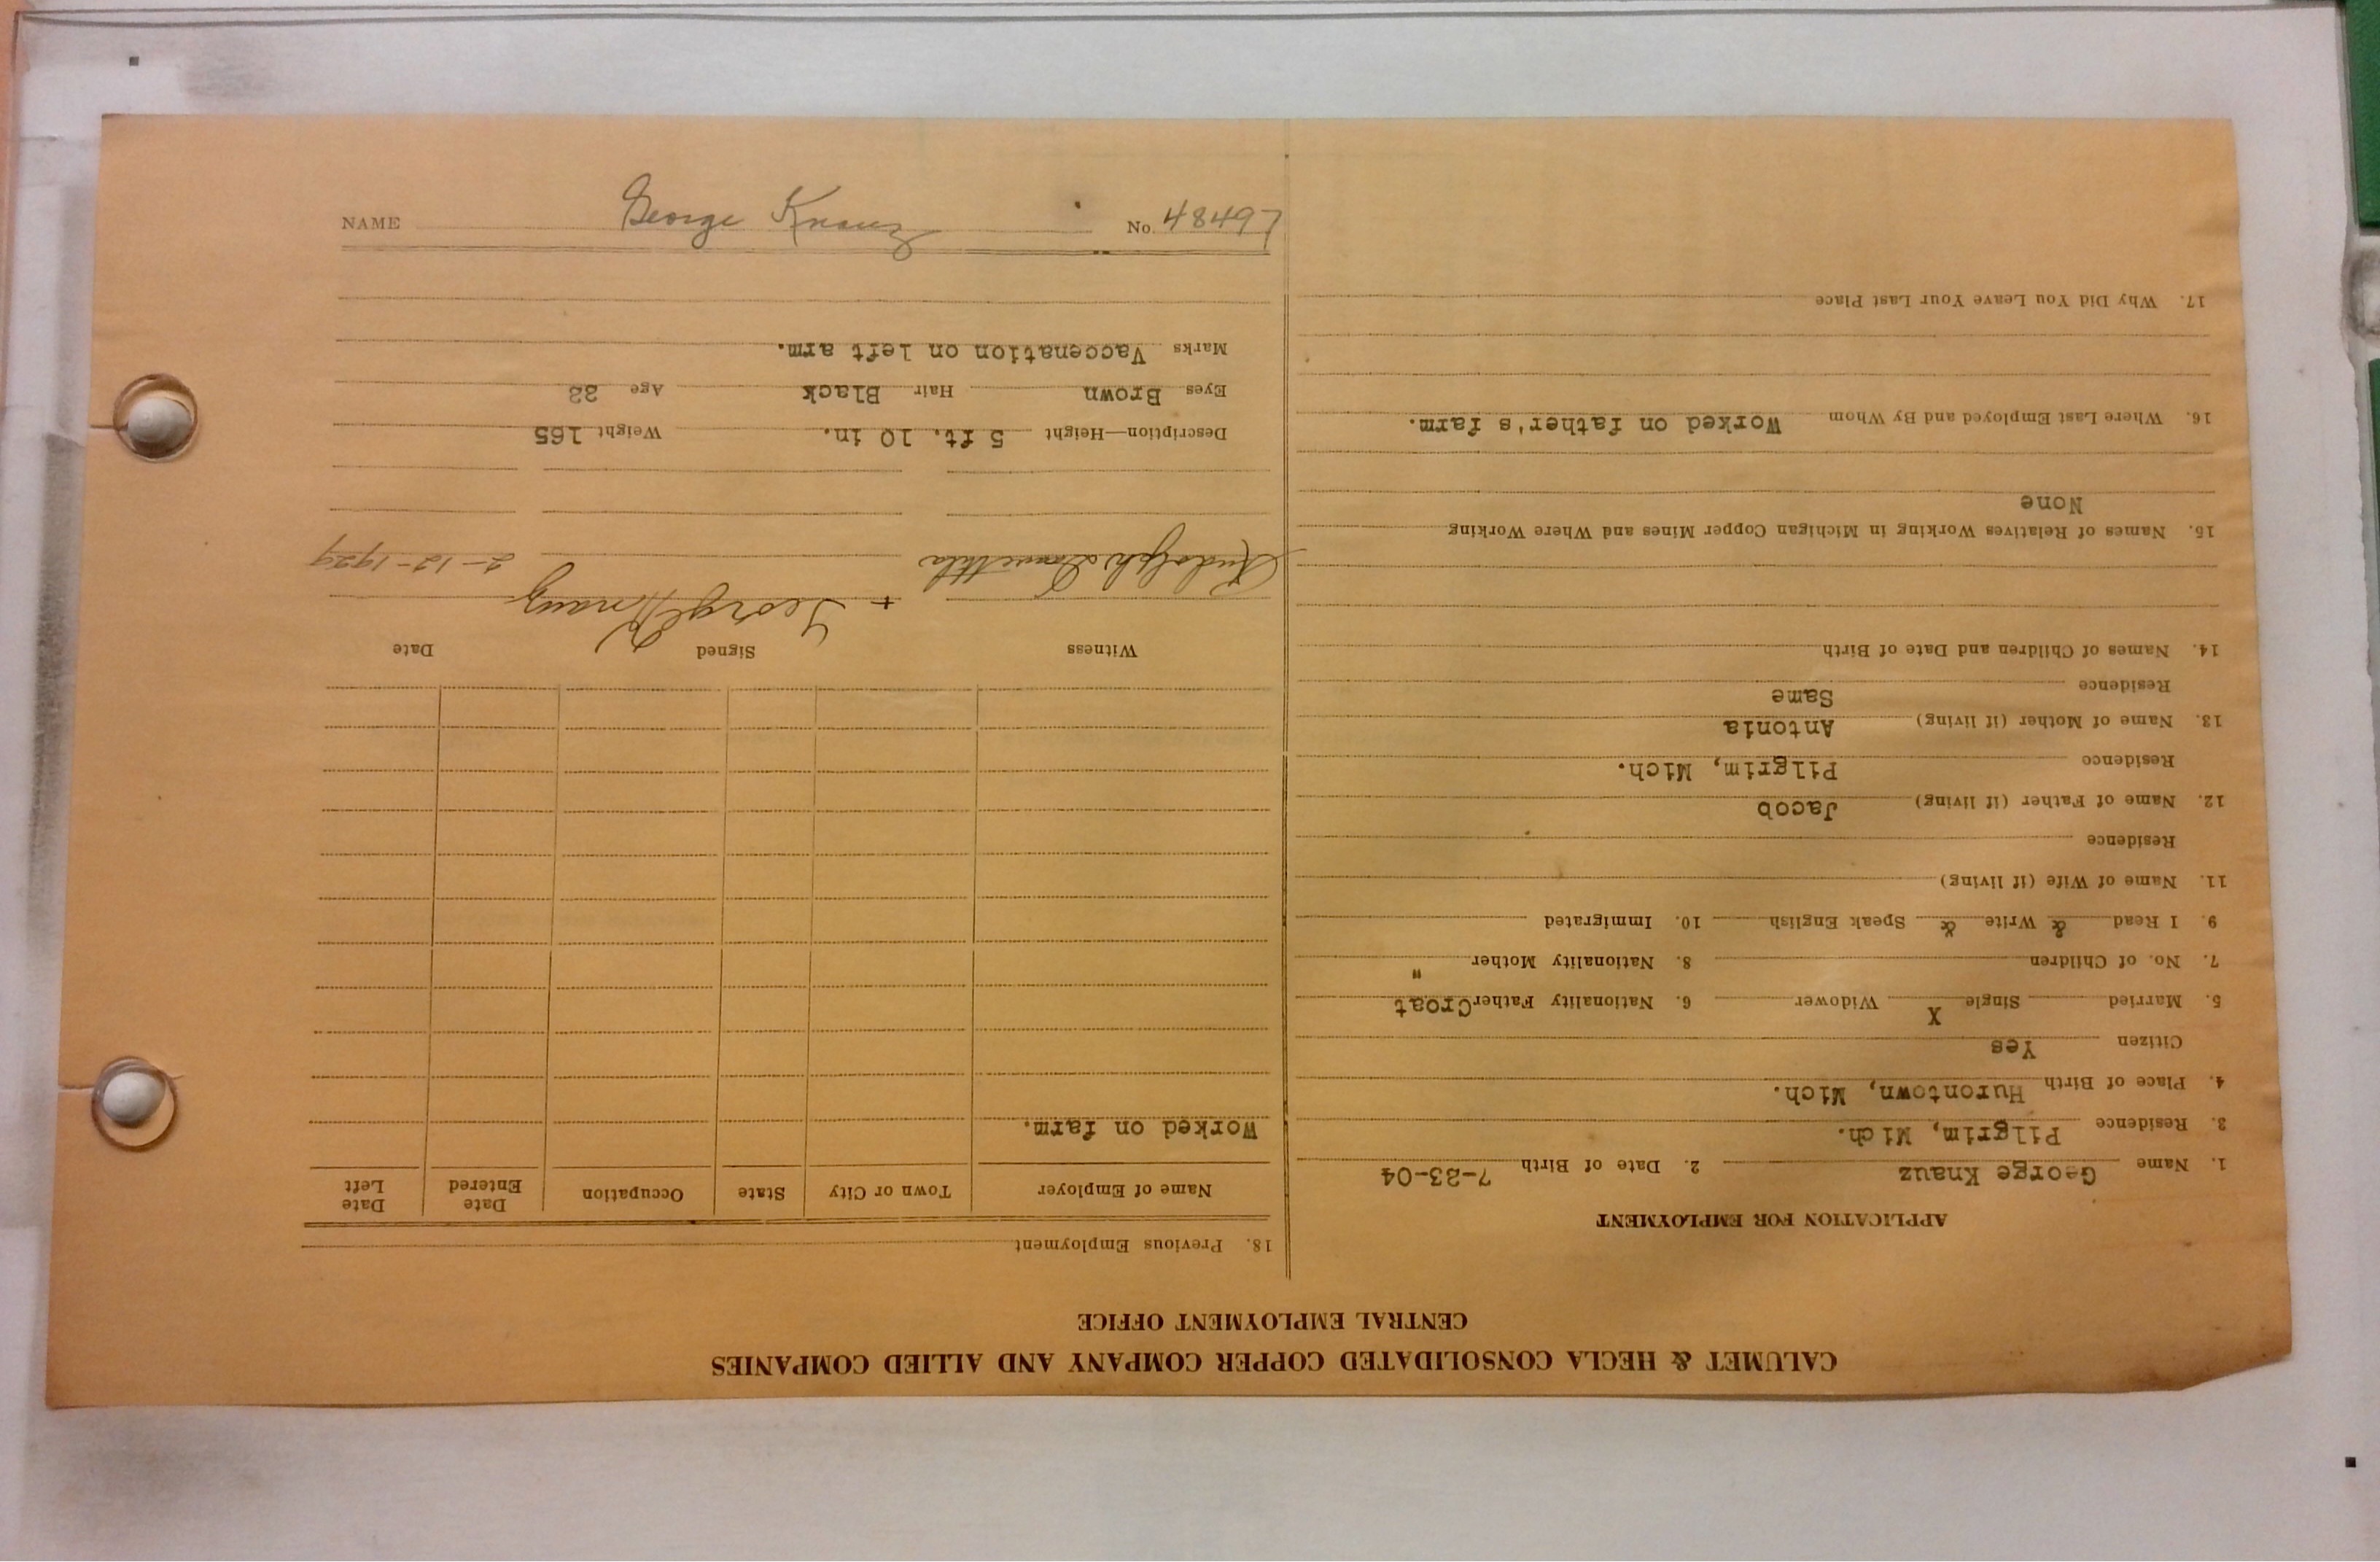 CALUMET & HECLA CONSOLIDATED COPPER COMPANY AND ALLIED COMPANIES
CENTRAL EMPLOYMENT OFFICE
APPLICATION FOR EMPLOYMENT
1. Name George Knauz 2. Date of Birth 7-23-04
3. Residence Pilgrim, Mich.
4. Place of Birth Hurontown, Mich.
Citizen Yes
5. Married Single X Widower 6. Nationality Father Croat
7. No. of Children 8. Nationality Mother "
9. I Read & Write & Speak English 10. Immigrated
11. Name of Wife (if living)
Residence
12. Name of Father (if living) Jacob
Residence Pilgrim, Mich.
13. Name of Mother (if living) Antonia
Residence Same
14. Names of Children and Date of Birth
15. Names of Relatives Working in Michigan Copper Mines and Where Working
None
16. Where Last Employed and By Whom Worked on father's farm.
17. Why Did You Leave Your Last Place
18. Previous Employment
Name of Employer Town or City State Occupation Date Entered Date Left
Worked on farm.
Witness Signed Date
+ George Knauz
Rudolph 2-12-1929
Description—Height 5 ft. 10 in. Weight 165
Eyes Brown Hair Black Age
Marks Vaccenation on left arm.
NAME George Knauz No. 48497